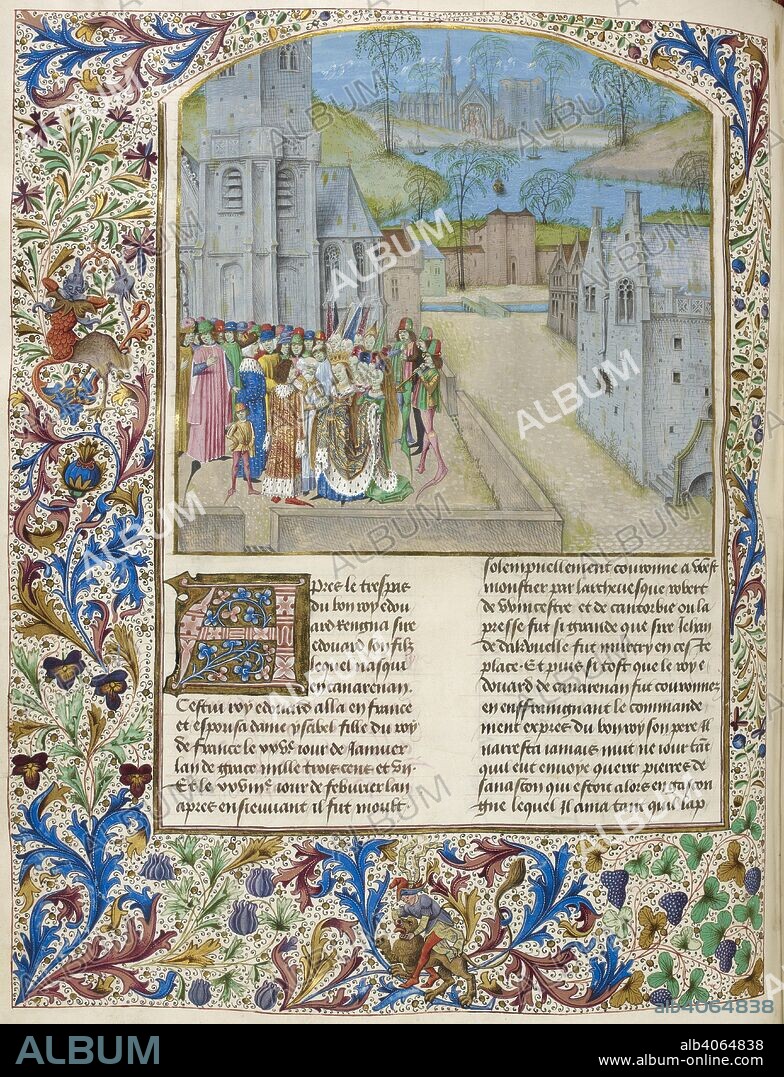 Apres le trespas
du bon roy edou
ard Rengna sire
edouard son filz
lequel nasqui
en carnarenan.
Cestui roy edouard alla en france
et espousa dame ysabel fille du roy
de france le xxve iour de Januier
lan de grace mille trois cens et vii
Et le xxviiie iour de feburier lan
apres en sieuuant il fut moult
solempnellement couronne a West
monstier par larcheuesque robert
de Wincestre et de cantorbie ou la
presse fut si grande que sire iehan
de bakouelle fut murtry en ceste
place. Et puis si tost que le roy e
douard de carnarenan fut couronnez
en enffraingnant le commande
ment expres du bon roy son pere Il
narresta iamais nuit ne iour tant
quil eut enuoye querir pierres de
gauascon qui estoit alors en gascon
gne lequel Il ama tant quil lap
ALBUM
alb4064838
www.album-online.com